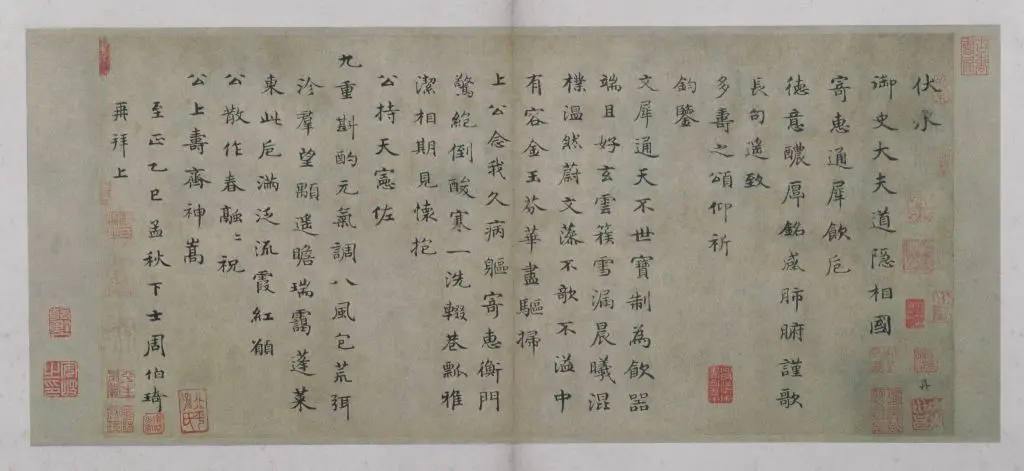 伏承
御史大夫道隐相國
寄惠通犀飲卮
德意醲厚銘感肺腑謹歌
長句遙致
多壽之頌仰祈
鈞鑒
文犀通天不世寶制為飲器
端且好玄雲簇雪漏晨曦混
樸溫然蔚文藻不欹不溢中
有容金玉芬華盡驅掃
上公念我久病軀寄惠衡門
驚絕倒酸寒一洗輟巷瓢雅
潔相期見懷抱
公持天憲佐
九重斟酌元氣調八風包荒弭
沴羣望顒遙瞻瑞靄蓬萊
東此卮滿泛流霞紅願
公散作春融〻祝
公上壽齊神嵩
至正乙巳孟秋下士周伯琦
再拜上